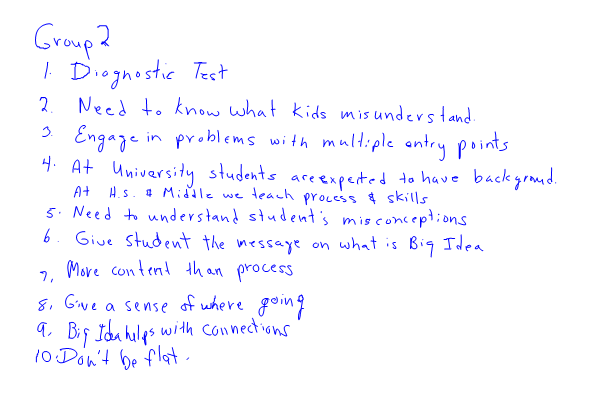 Group 2
1. Diagnostic Test
2. Need to know what kids misunderstand.
3. Engage in problems with multiple entry points
4. At University students are expected to have background.
At H.S. & Middle we teach process & skills
5. Need to understand student's misconceptions
6. Give student the message on what is Big Idea
7. More content than process
8. Give a sense of where going
9. Big Idea helps with connections
10. Don't be flat.